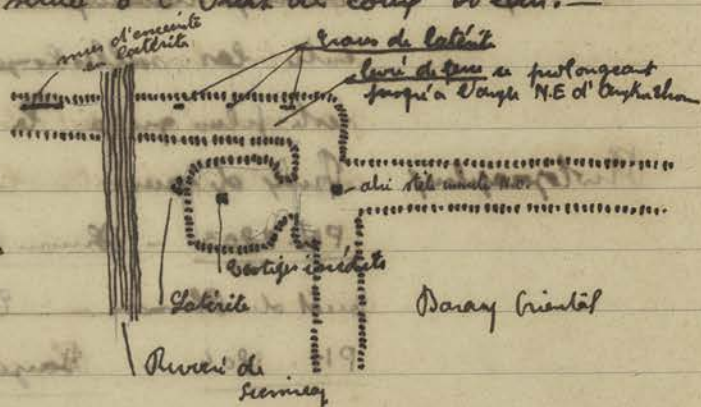 située à l'Ouest du coup d'eau. —
murs d'enceinte
en latérite
traces de latérite
levée de terre se prolongeant
jusqu'à l'angle N.E d'Angkor Thom
abri stèle
Vestiges inédits
Latérite
Baray Oriental
Rivière de
Siemreap